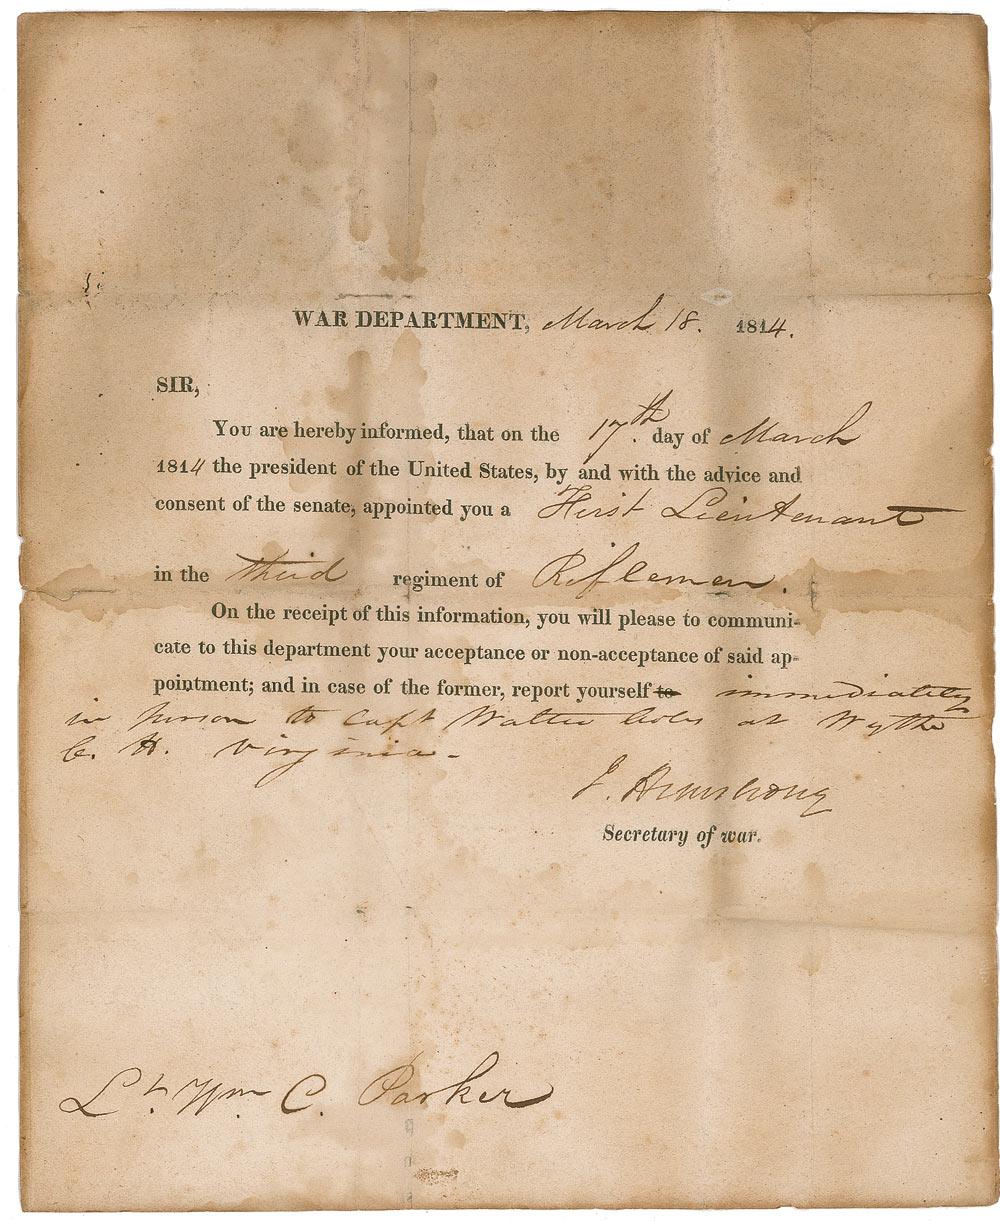 WAR DEPARTMENT, March 18. 1814.
SIR,
You are hereby informed, that on the 17th. day of March
1814 the president of the United States, by and with the advice and
consent of the senate, appointed you a First Lieutenant
in the third regiment of Riflemen.
On the receipt of this information, you will please to communi-
cate to this department your acceptance or non-acceptance of said ap-
pointment; and in case of the former, report yourself to immediately
in person to Capt Walter Coles at Wythe
C. H. Virginia-
J. Armstrong
Secretary of war.
Lt. Wm C. Parker